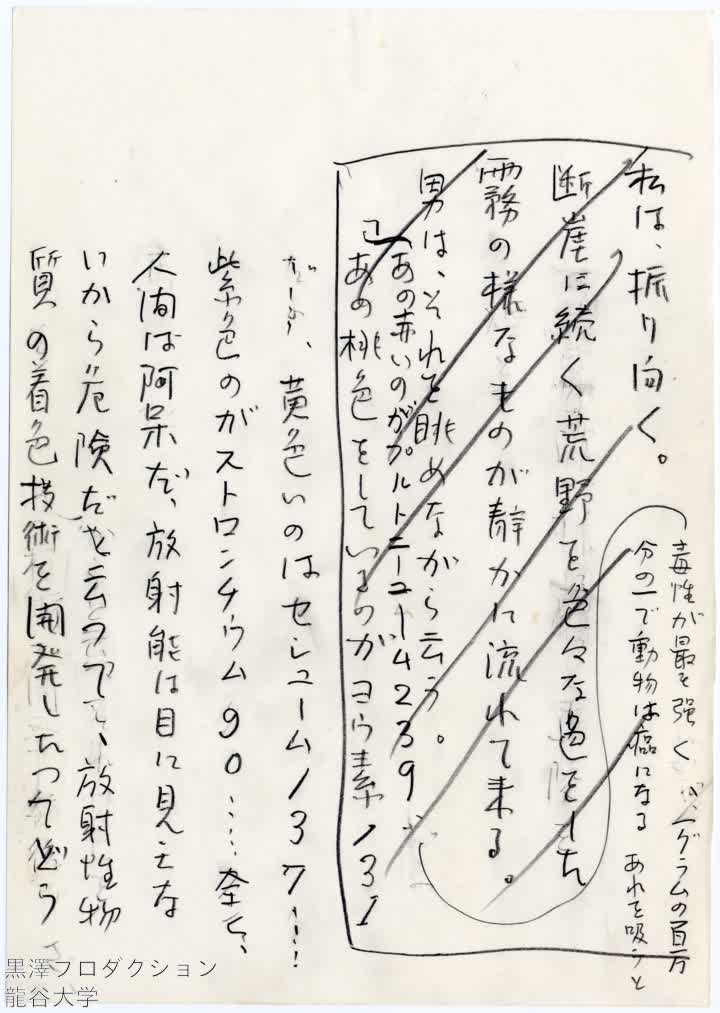 私は、振り向く。
断崖に続く荒野を色々な色をした
霧の様なものが静かに流れて来る。
男は、それを眺めながら云う。
「あの赤いのがプルトニューム239…
毒性が最も強く 一グラムの百万
分の一で動物は癌になる あれを吸うと
あの桃色をしているのがヨウ素131
黄色いのはセシューム137…
紫色のがストロンチウム90……全く、
人間は阿呆だ、放射能は目に見えな
いから危険だと云って、放射性物
質の着色技術を開発したってどう
黒澤プロダクション
龍谷大学